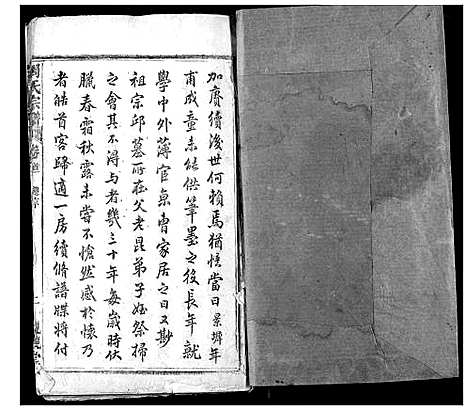 加賡續後世何賴焉猶憶當日景墀年
甫成童未能供筆墨之役長年就
學中外薄官京曹家居之日又尠
祖宗邱墓所在父老昆弟子姪祭掃
之會其不淂与者幾三十年每歲時伏
臘春霜秋露未嘗不愴然感於懷乃
者皓首客歸適一房續脩譜牒將付
氏宗譜 卷首